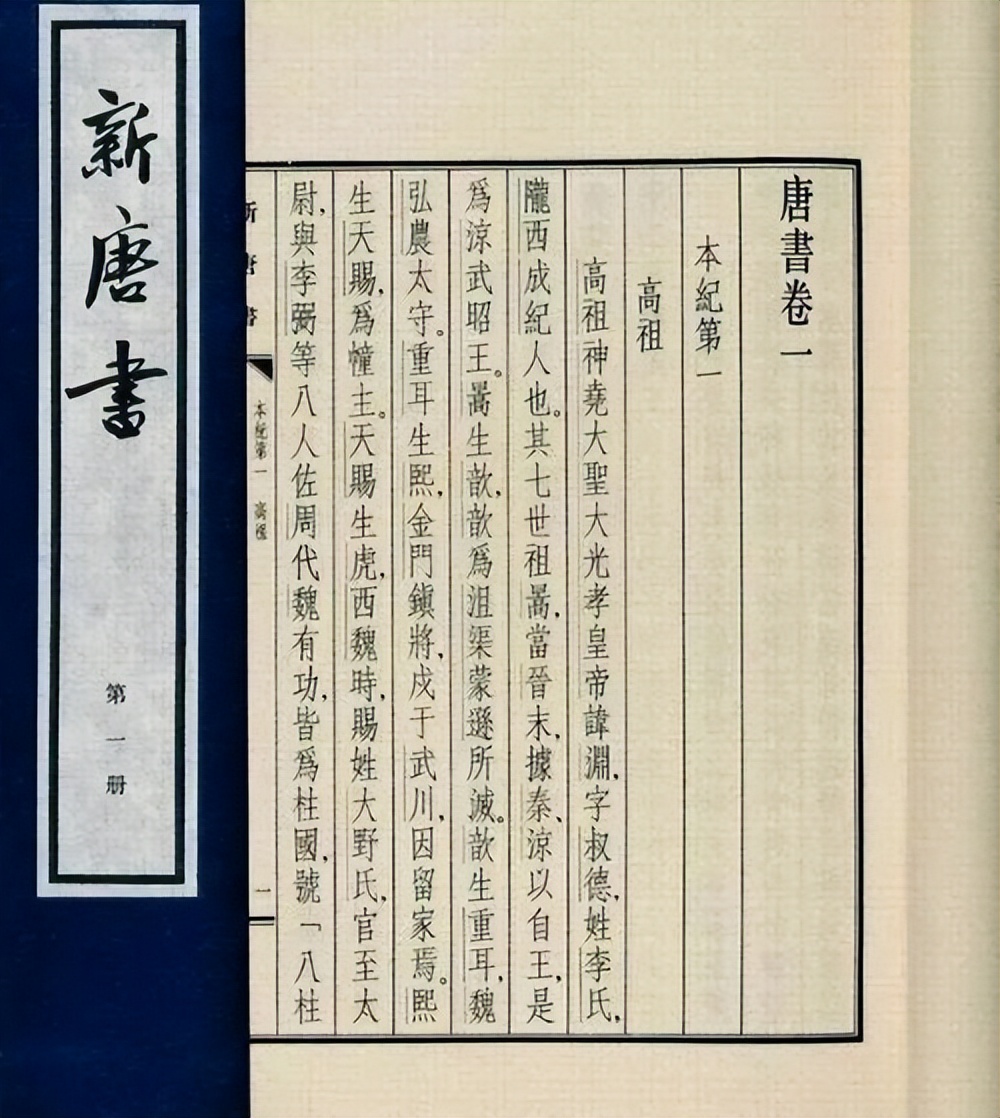 新唐書
第一册
唐書卷一
本紀第一
高祖
高祖神堯大聖大光孝皇帝諱淵，字叔德，姓李氏，
隴西成紀人也。其七世祖暠，當晉末，據秦、涼以自王，是
爲涼武昭王。暠生歆，歆爲沮渠蒙遜所滅。歆生重耳，魏
弘農太守。重耳生熙，金門鎮將，戍于武川，因留家焉。熙
生天賜，爲幢主。天賜生虎，西魏時，賜姓大野氏，官至太
尉，與李弼等八人佐周代魏有功，皆爲柱國，號「八柱
新唐書
本紀第一　高祖
一